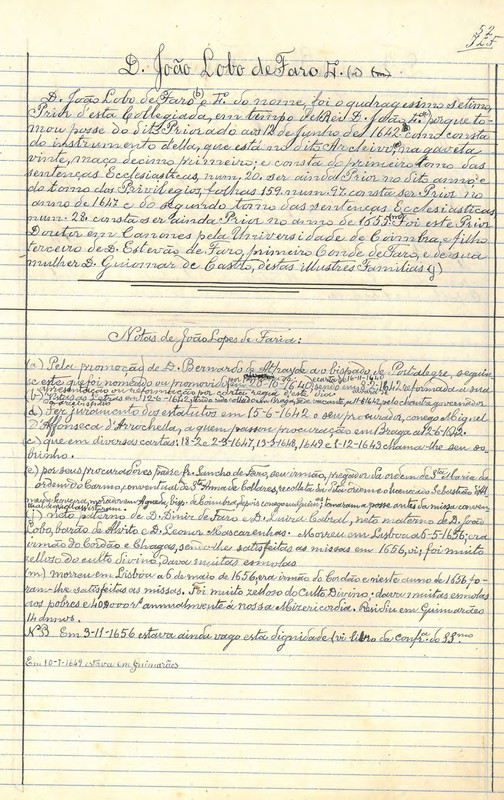 52
325
D. João Lobo de Faro
D. João Lobo de Faro (b) e 1º do nome, foi o quadragesimo setimo
Prior d'esta Collegiada, em tempo d'el Rei D. João 4º, porque to-
mou posse do dito Priorado aos 12 de junho de 1642 como consta
do instrumento della, que está no dito Archivo, na gaveta
vinte, maço decimo primeiro: e consta do primeiro tomo das
sentenças Ecclesiasticas, num. 20. ser ainda Prior no dito anno: e
do tomo dos Privilegios, folhas 159. num. 97. consta ser Prior no
anno de 1647 e do segundo tomo das sentenças Ecclesiasticas
num. 28. consta ser ainda Prior no anno de 1655. Foi este Prior
Doutor em Canones pela Universidade de Coimbra, e filho
terceiro de D. Estevão de Faro, primeiro Conde de Faro, e de sua
mulher D. Guiomar de Castro, d'estas illustres Familias
Notas de João Lopes de Faria:
(a) Pela promoção de D. Bernardo de Athayde ao bispado de Portalegre, seguin-
se este que foi nomeado ou promovido 20-10-1640 sendo em 8-2-1642 reformada a sua
apresentação ou reformação por carta regia d'este dia
(b) Passadas letras em 12-6-1642 Braga
(d) Fez juramento dos estatutos em 15-6-1642 o seu procurador, conego Miguel
d'Affonseca d'Arrochella, a quem passou procuração em Braga a 12-6-1642.
(c) que em diversas cartas: 18-2 e 2-3-1647, 13-3-1648, 1649 e 1-12-1643 chama-lhe seu so-
brinho.
(e) por seus procuradores padre fr. Sancho de Faro, seu irmão, pregador da ordem de Sta Maria da
ordem do Carmo, conventual de Sta Anna de Collares, e o licenciado Sebastião
tomaram a posse antes da missa conven-
tual
(f) Neto paterno de D. Diniz de Faro e D. Luiza Cabral, neto materno de D. João
Lobo, barão de Alvito e D. Leonor Mascarenhas. Morreu em Lisboa a 6-5-1656; era
irmão do Cordão e Chagas, sendo-lhe satisfeitas as missas em 1656; foi muito
zelloso do culto divino, dava muitas esmolas
(m) morreu em Lisboa a 6 de maio de 1656, era irmão do Cordão e n'este anno de 1656 fo-
ram-lhe satisfeitas as missas. Foi muito zelloso do Culto Divino; dava muitas esmolas
aos pobres e 40$000 rs annualmente á nossa Misericordia. Residiu em Guimarães
14 annos.
N.B Em 3-11-1656 estava ainda vago esta dignidade (vi libro da confr.a do SS.mo
Em 10-7-1649 estava em Guimarães